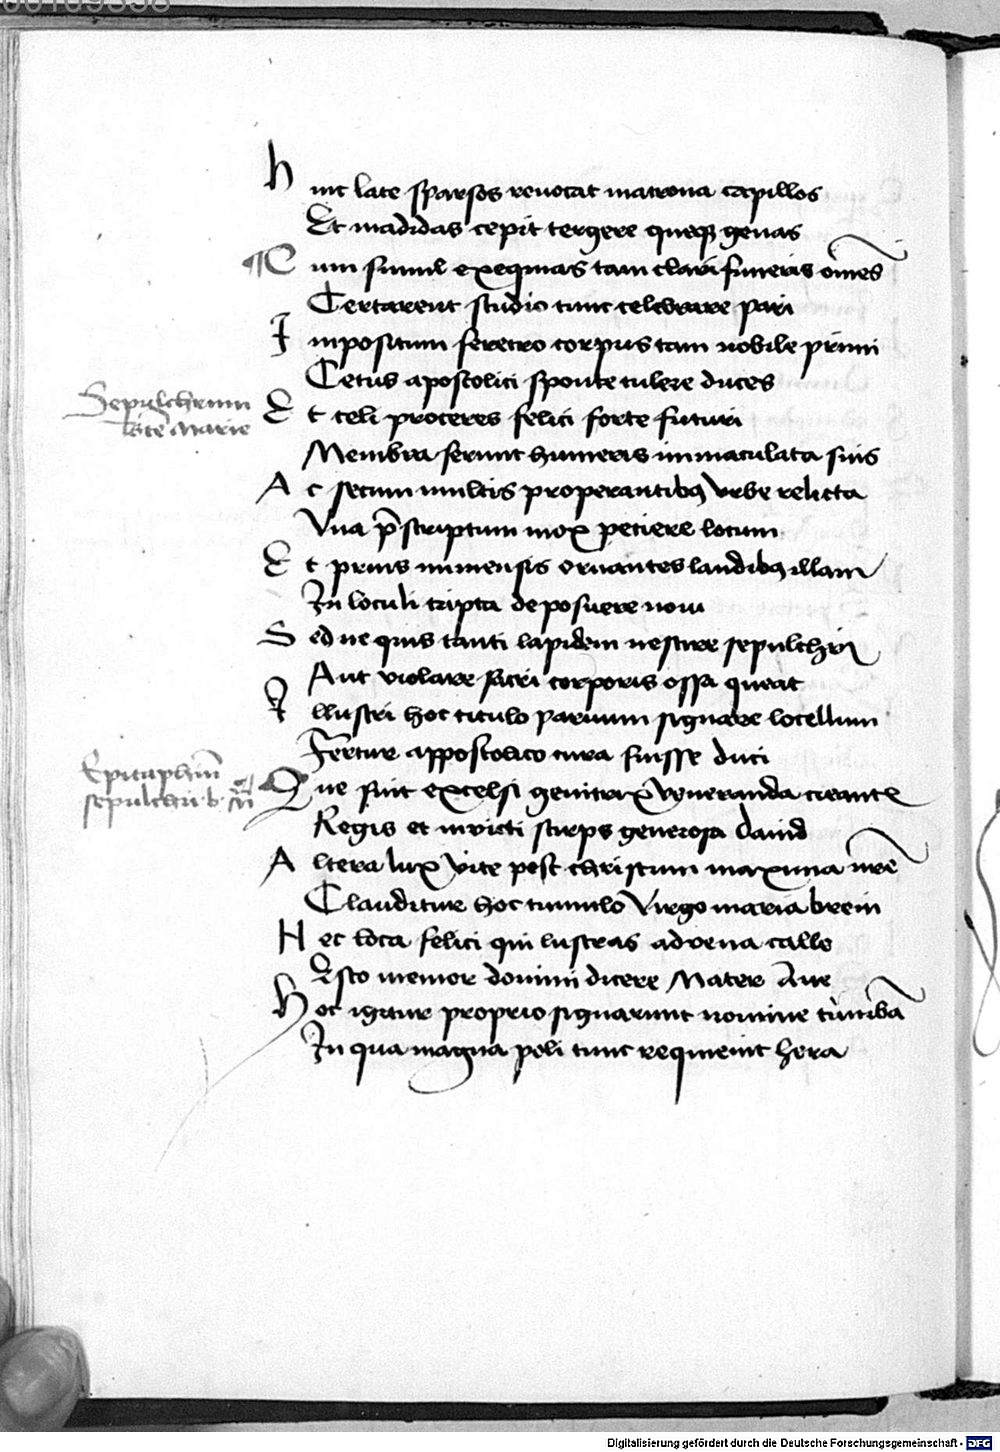 Hinc late sparsos reuocat matrona capillos
Et madidas cepit tergere queqꝫ genas
¶ Cum simul exequias tam clari funeris om̄es
Certarent studio tunc celebrare pari
Inpositum feretro corpus tam nobile primi
Cetus apostolici sponte tulere duces
Sepulchrum
bt̄e Marie
Et celi proceres felici forte futuri
Membra ferunt humeris immaculata suis
Ac secum multis properantibꝫ vrbe relicta
Vna p̄scriptum mox petiere locum
Et prius immensis ornantes laudibꝫ illam
In loculi cripta deposuere noui
Sed ne quis tanti lapidem nescire sepulchri
Aut violare sacri corporis ossa queat
Illustri hoc titulo paruum signare locellum
Fertur appostolico cura fuisse duci
Epitaphiū
sepulchri b.
Que fuit excelsi genitrix veneranda creantis
Regis et inuicti stirps generosa Dauid
Altera lux vite post christum maxima nr̄e
Clauditur hoc tumulo Virgo maria breui
Hec loca felici qui lustras aduena calle
Esto memor domini dicere Mater Aue
Hoc igitur proprio signarunt nomine tumbā
In qua magna poli tunc requieuit hera
Digitalisierung gefördert durch die Deutsche Forschungsgemeinschaft - DFG